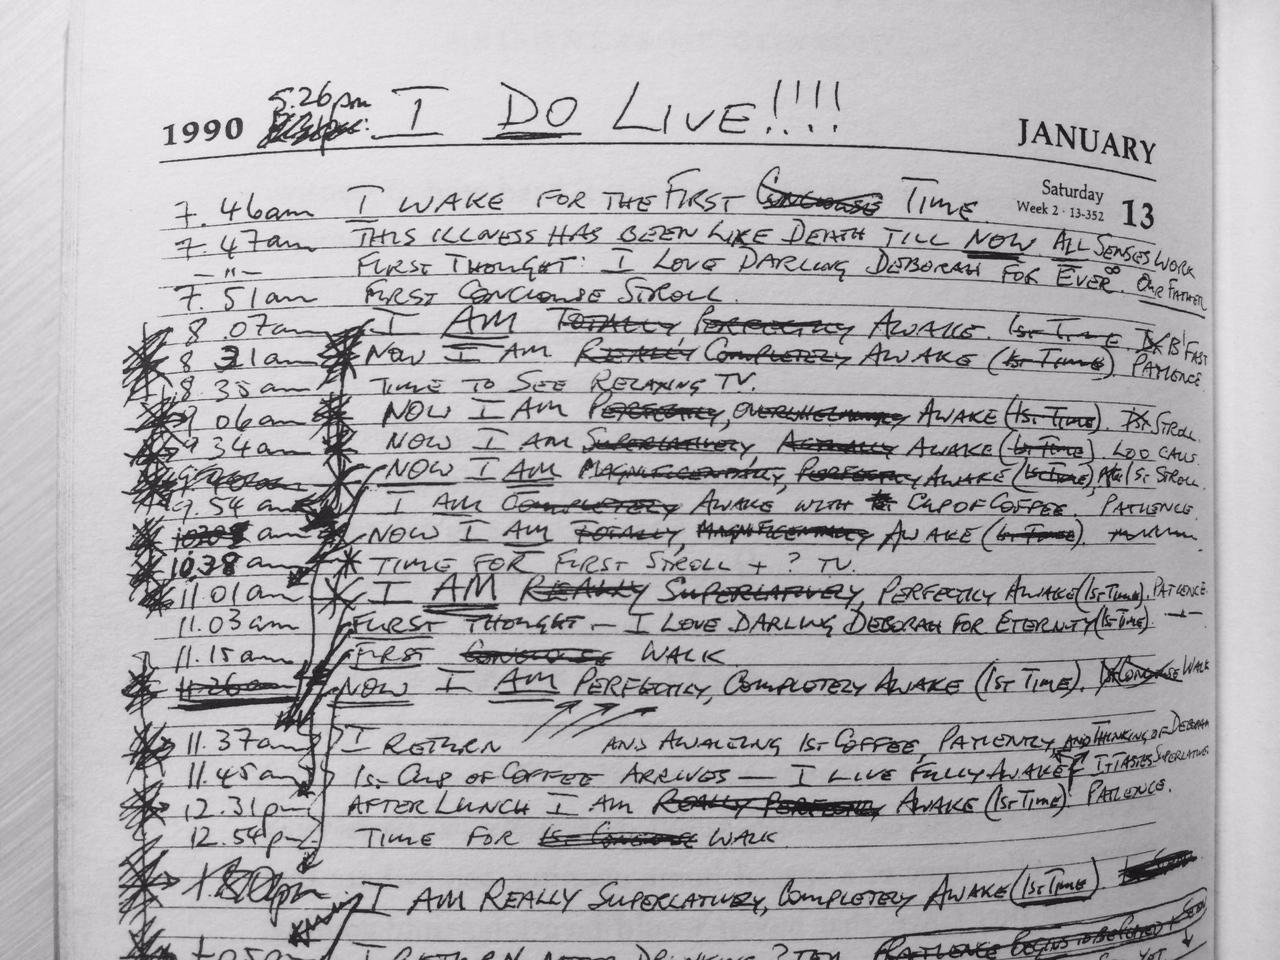 5.26pm I DO LIVE!!!!
1990 JANUARY
Saturday
Week 2 · 13-352 13
7.46am I WAKE FOR THE FIRST CONCIOUSE TIME.
7.47am THIS ILLNESS HAS BEEN LIKE DEATH TILL NOW ALL SENSES WORK
—"— FIRST THOUGHT: I LOVE DARLING DEBORAH FOR EVER. OUR FATHER
7.51am FIRST CONCIOUSE STROLL.
8.07am I AM TOTALLY PERFECTLY AWAKE. 1St TIME B'FAST
8.31am NOW I AM REALLY COMPLETELY AWAKE (1St TIME) PATIENCE
8.35am TIME TO SEE RELAXING TV.
9.06am NOW I AM PERFECTLY, OVERWHELMINGLY AWAKE (1St TIME). STROLL.
9.34am NOW I AM SUPERLATIVELY, ACTUALLY AWAKE (1St TIME). LOO CALL.
NOW I AM MAGNIFICENTALLY, PERFECTLY AWAKE (1St TIME), 1St STROLL.
9.54am I AM COMPLETELY AWAKE WITH CUP OF COFFEE. PATIENCE.
am NOW I AM TOTALLY MAGNIFICENTALLY AWAKE (1St TIME).
10.38am TIME FOR FIRST STROLL + ? TV.
11.01am I AM REALLY SUPERLATIVELY, PERFECTLY AWAKE (1St TIME). PATIENCE.
11.03am FIRST THOUGHT — I LOVE DARLING DEBORAH FOR ETERNITY (1St TIME). —"—
11.15am FIRST CONCIOUSE WALK
11.26am NOW I AM PERFECTLY, COMPLETELY AWAKE (1St TIME). 1St CONCIOUSE WALK
11.37am I RETURN AND AWAITING 1St COFFEE, PATIENTLY, AND THINKING OF DEBORAH
11.45am 1St CUP OF COFFEE ARRIVES — I LIVE FULLY AWAKE IT TASTES SUPERLATIVE
12.31pm AFTER LUNCH I AM REALLY PERFECTLY AWAKE (1St TIME). PATIENCE.
12.54pm TIME FOR 1St CONCIOUSE WALK
I AM REALLY SUPERLATIVELY, COMPLETELY AWAKE (1St TIME).
I RETURN AFTER DRINKING ? PATIENCE BEGINS TO BE